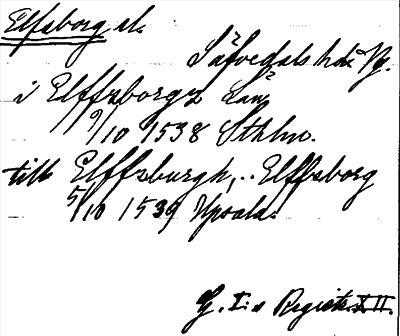 Elfsborg sl.
Säfvedals hd Vg.
i Elffsborgs Län
19/10 1538 Sthlm.
till Elffsburgh, .. Elffsborg
5/10 1539 Upsala.
G. I:s Registr. XII.